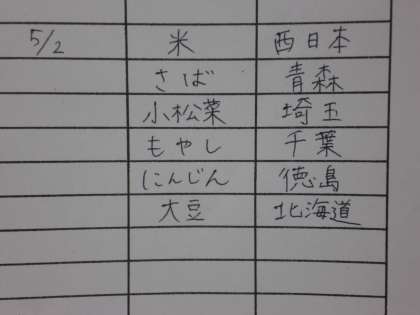 5/2 米 西日本
さば 青森
小松菜 埼玉
もやし 千葉
にんじん 徳島
大豆 北海道